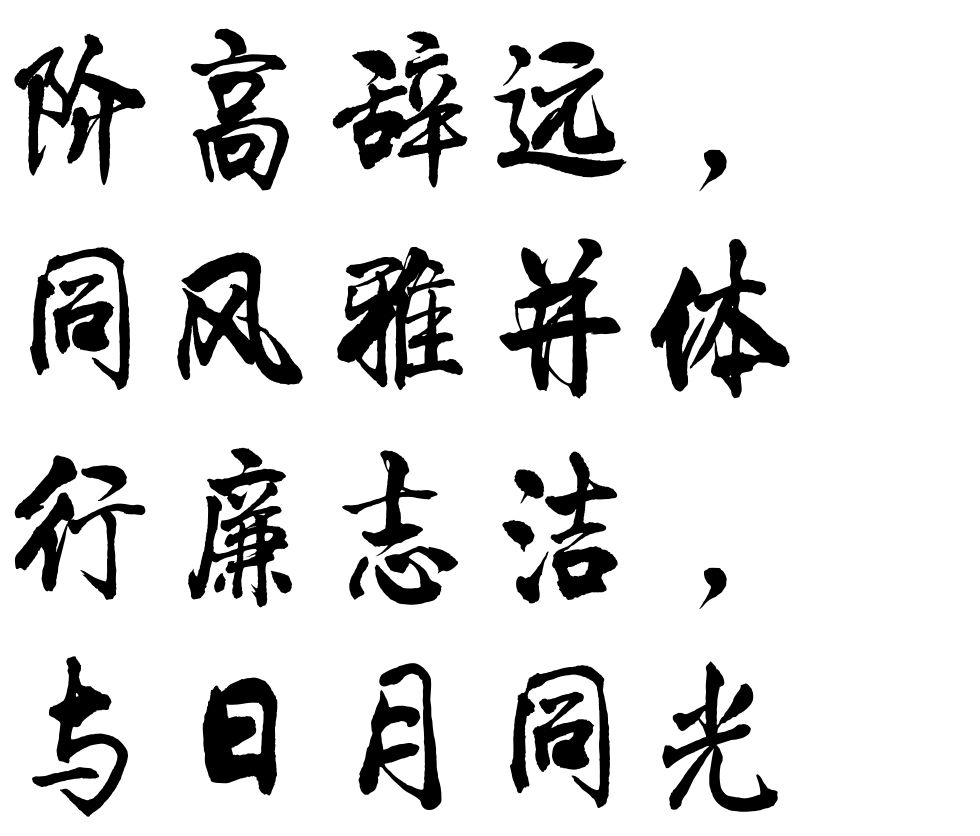 阶高辞远，
同风雅并体
行廉志洁，
与日月同光